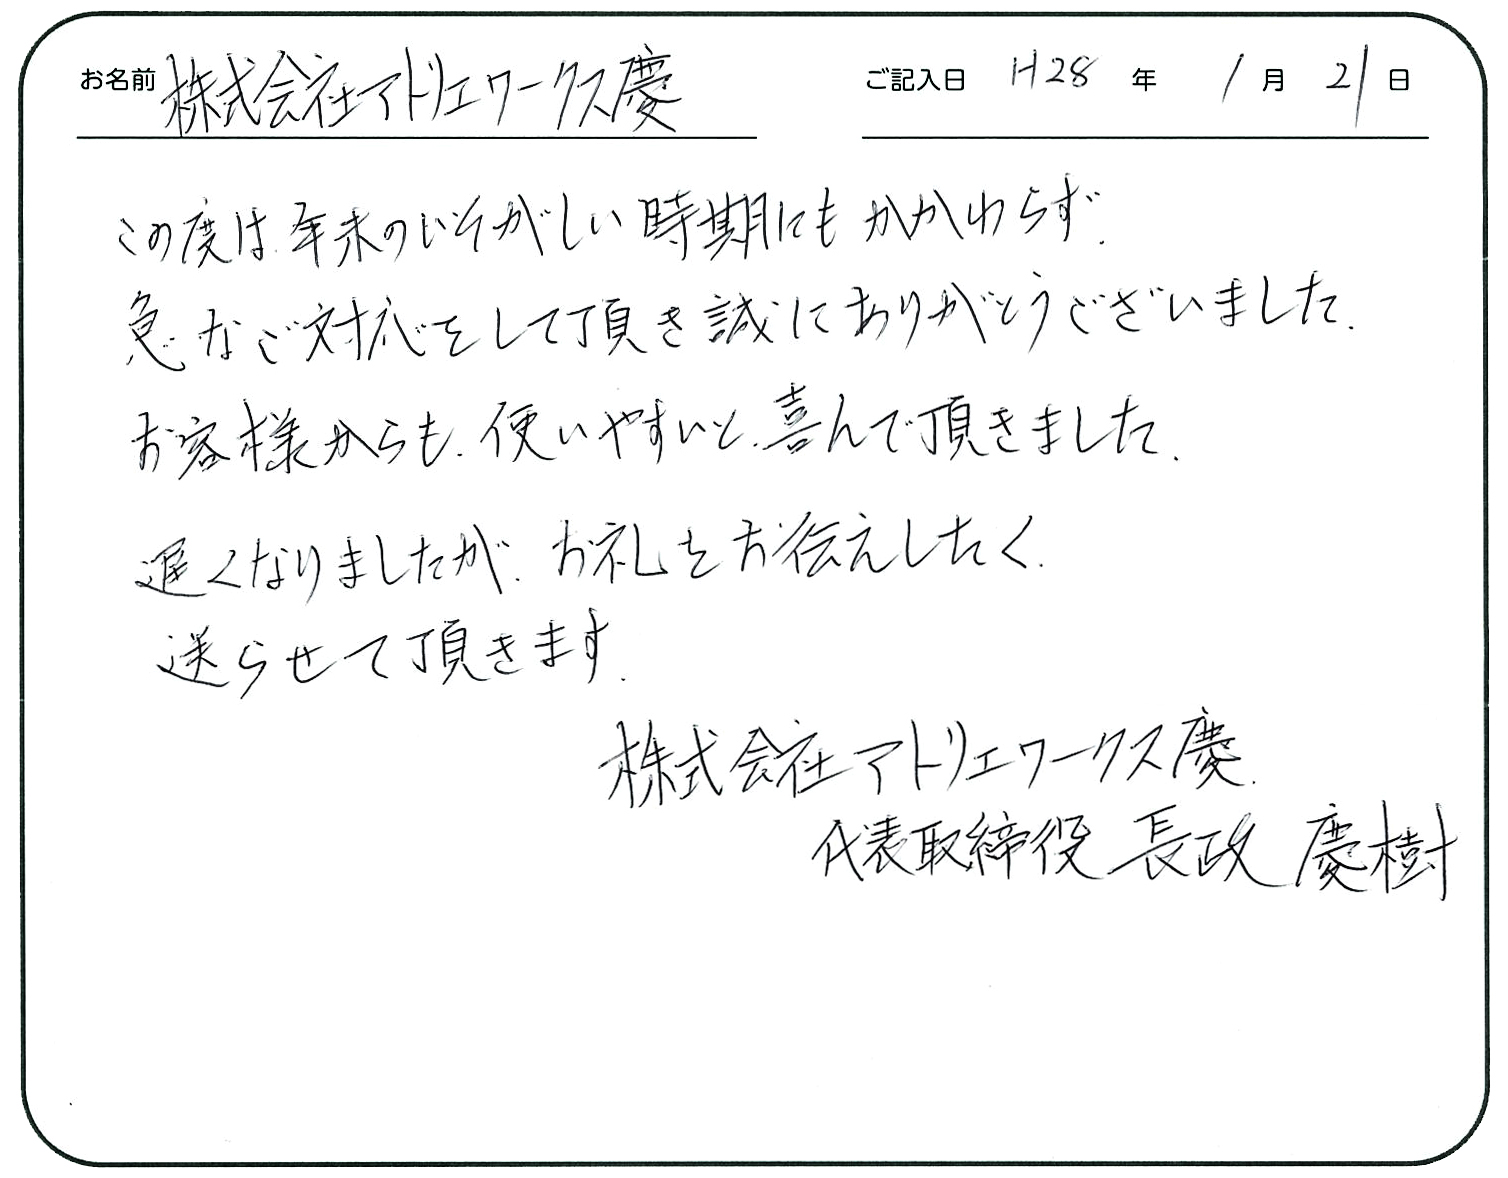 お名前 株式会社アトリエワークス慶 ご記入日 H28 年 1 月 21 日
この度は、年末のいそがしい時期にもかかわらず、
急なご対応をして頂き誠にありがとうございました。
お客様からも、使いやすいと、喜んで頂きました。
遅くなりましたが、お礼をお伝えしたく、
送らせて頂きます。
株式会社アトリエワークス慶
代表取締役 長政 慶樹